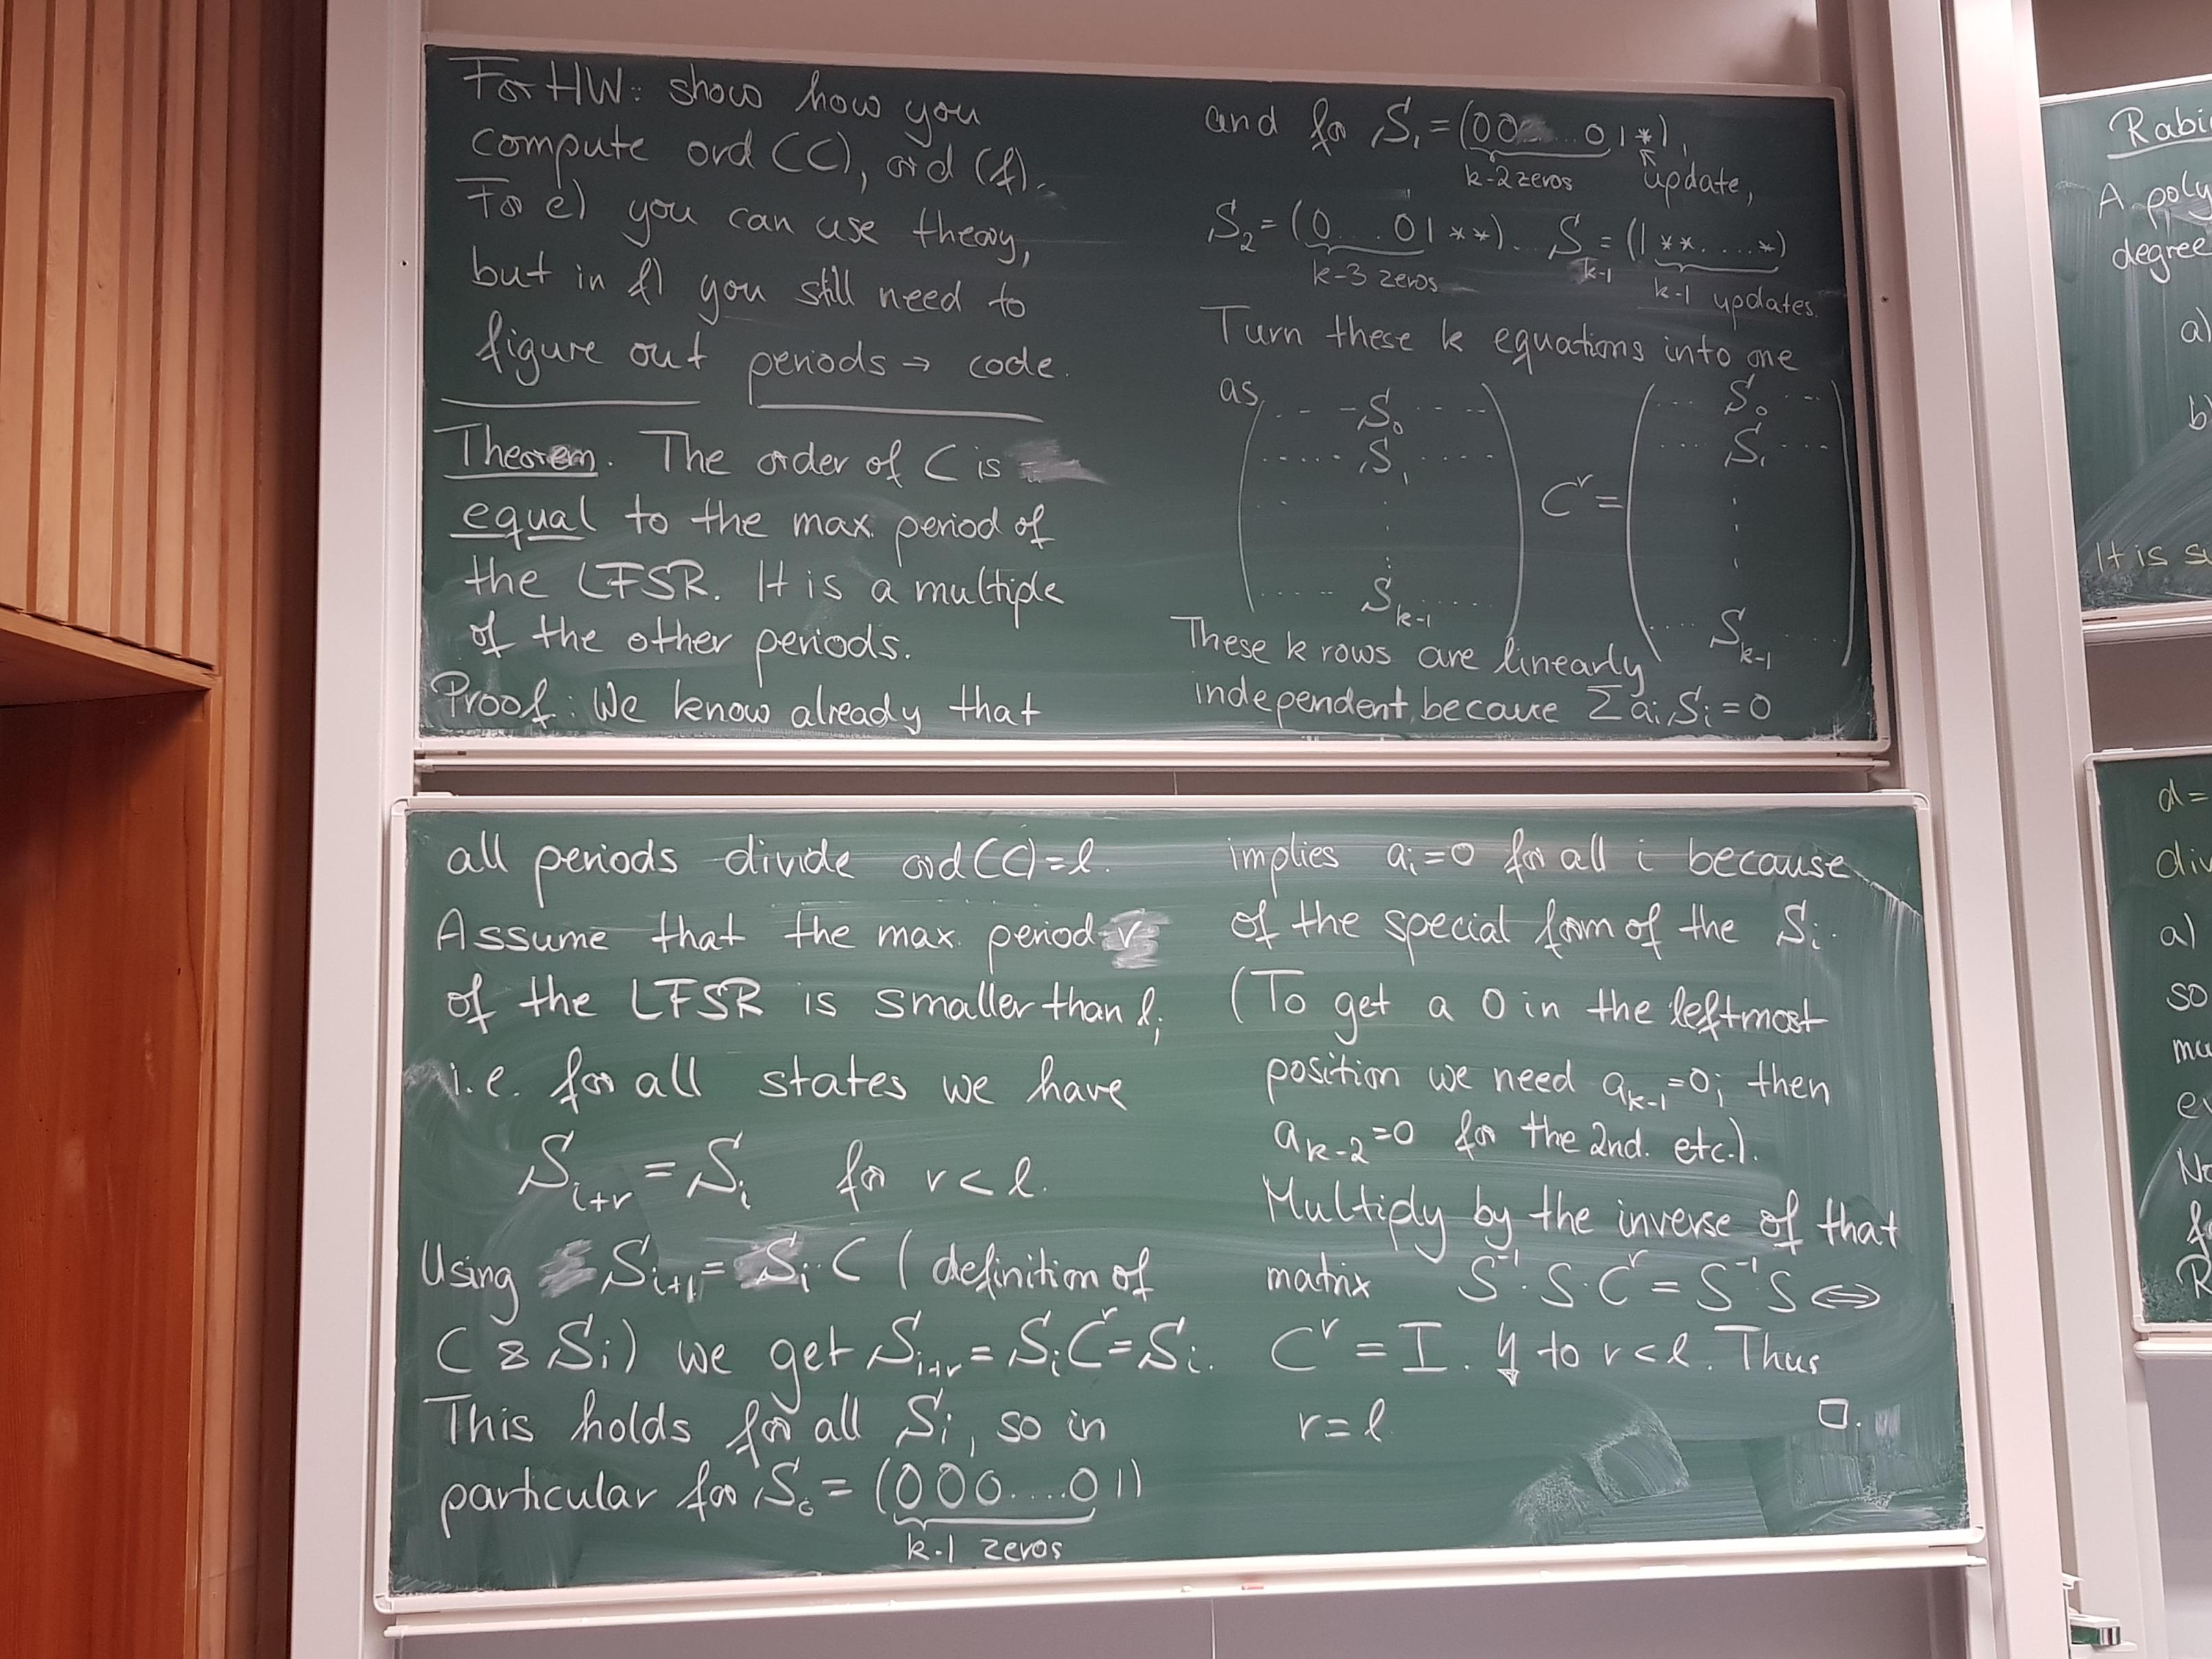 For HW: show how you
compute ord (C), ord (f).
For e) you can use theory,
but in f) you still need to
figure out periods → code.
Theorem. The order of C is
equal to the max. period of
the LFSR. It is a multiple
of the other periods.
Proof: We know already that
all periods divide ord(C)=l.
Assume that the max. period r
of the LFSR is smaller than l,
i.e. for all states we have
S_{i+r} = S_i for r < l.
Using S_{i+1} = S_i · C (definition of
C & S_i) we get S_{i+r} = S_i C^r = S_i.
This holds for all S_i, so in
particular for S_0 = (000....01)
k-1 zeros
and for S_1 = (00....01*),
k-2 zeros update,
S_2 = (0...01**).. S_{k-1} = (1**....*)
k-3 zeros k-1 updates.
Turn these k equations into one
as
S_0 S_0
S_1 S_1
C^r =
S_{k-1} S_{k-1}
These k rows are linearly
independent, because Σ a_i S_i = 0
implies a_i = 0 for all i because
of the special form of the S_i.
(To get a 0 in the leftmost
position we need a_{k-1}=0; then
a_{k-2}=0 for the 2nd. etc.).
Multiply by the inverse of that
matrix S^{-1} · S · C^r = S^{-1} S ⇔
C^r = I. ↯ to r < l. Thus
r = l □.
Rabi
A poly
degree
a)
b)
It is su
d =
div
a)
so
ma
ev
No
R